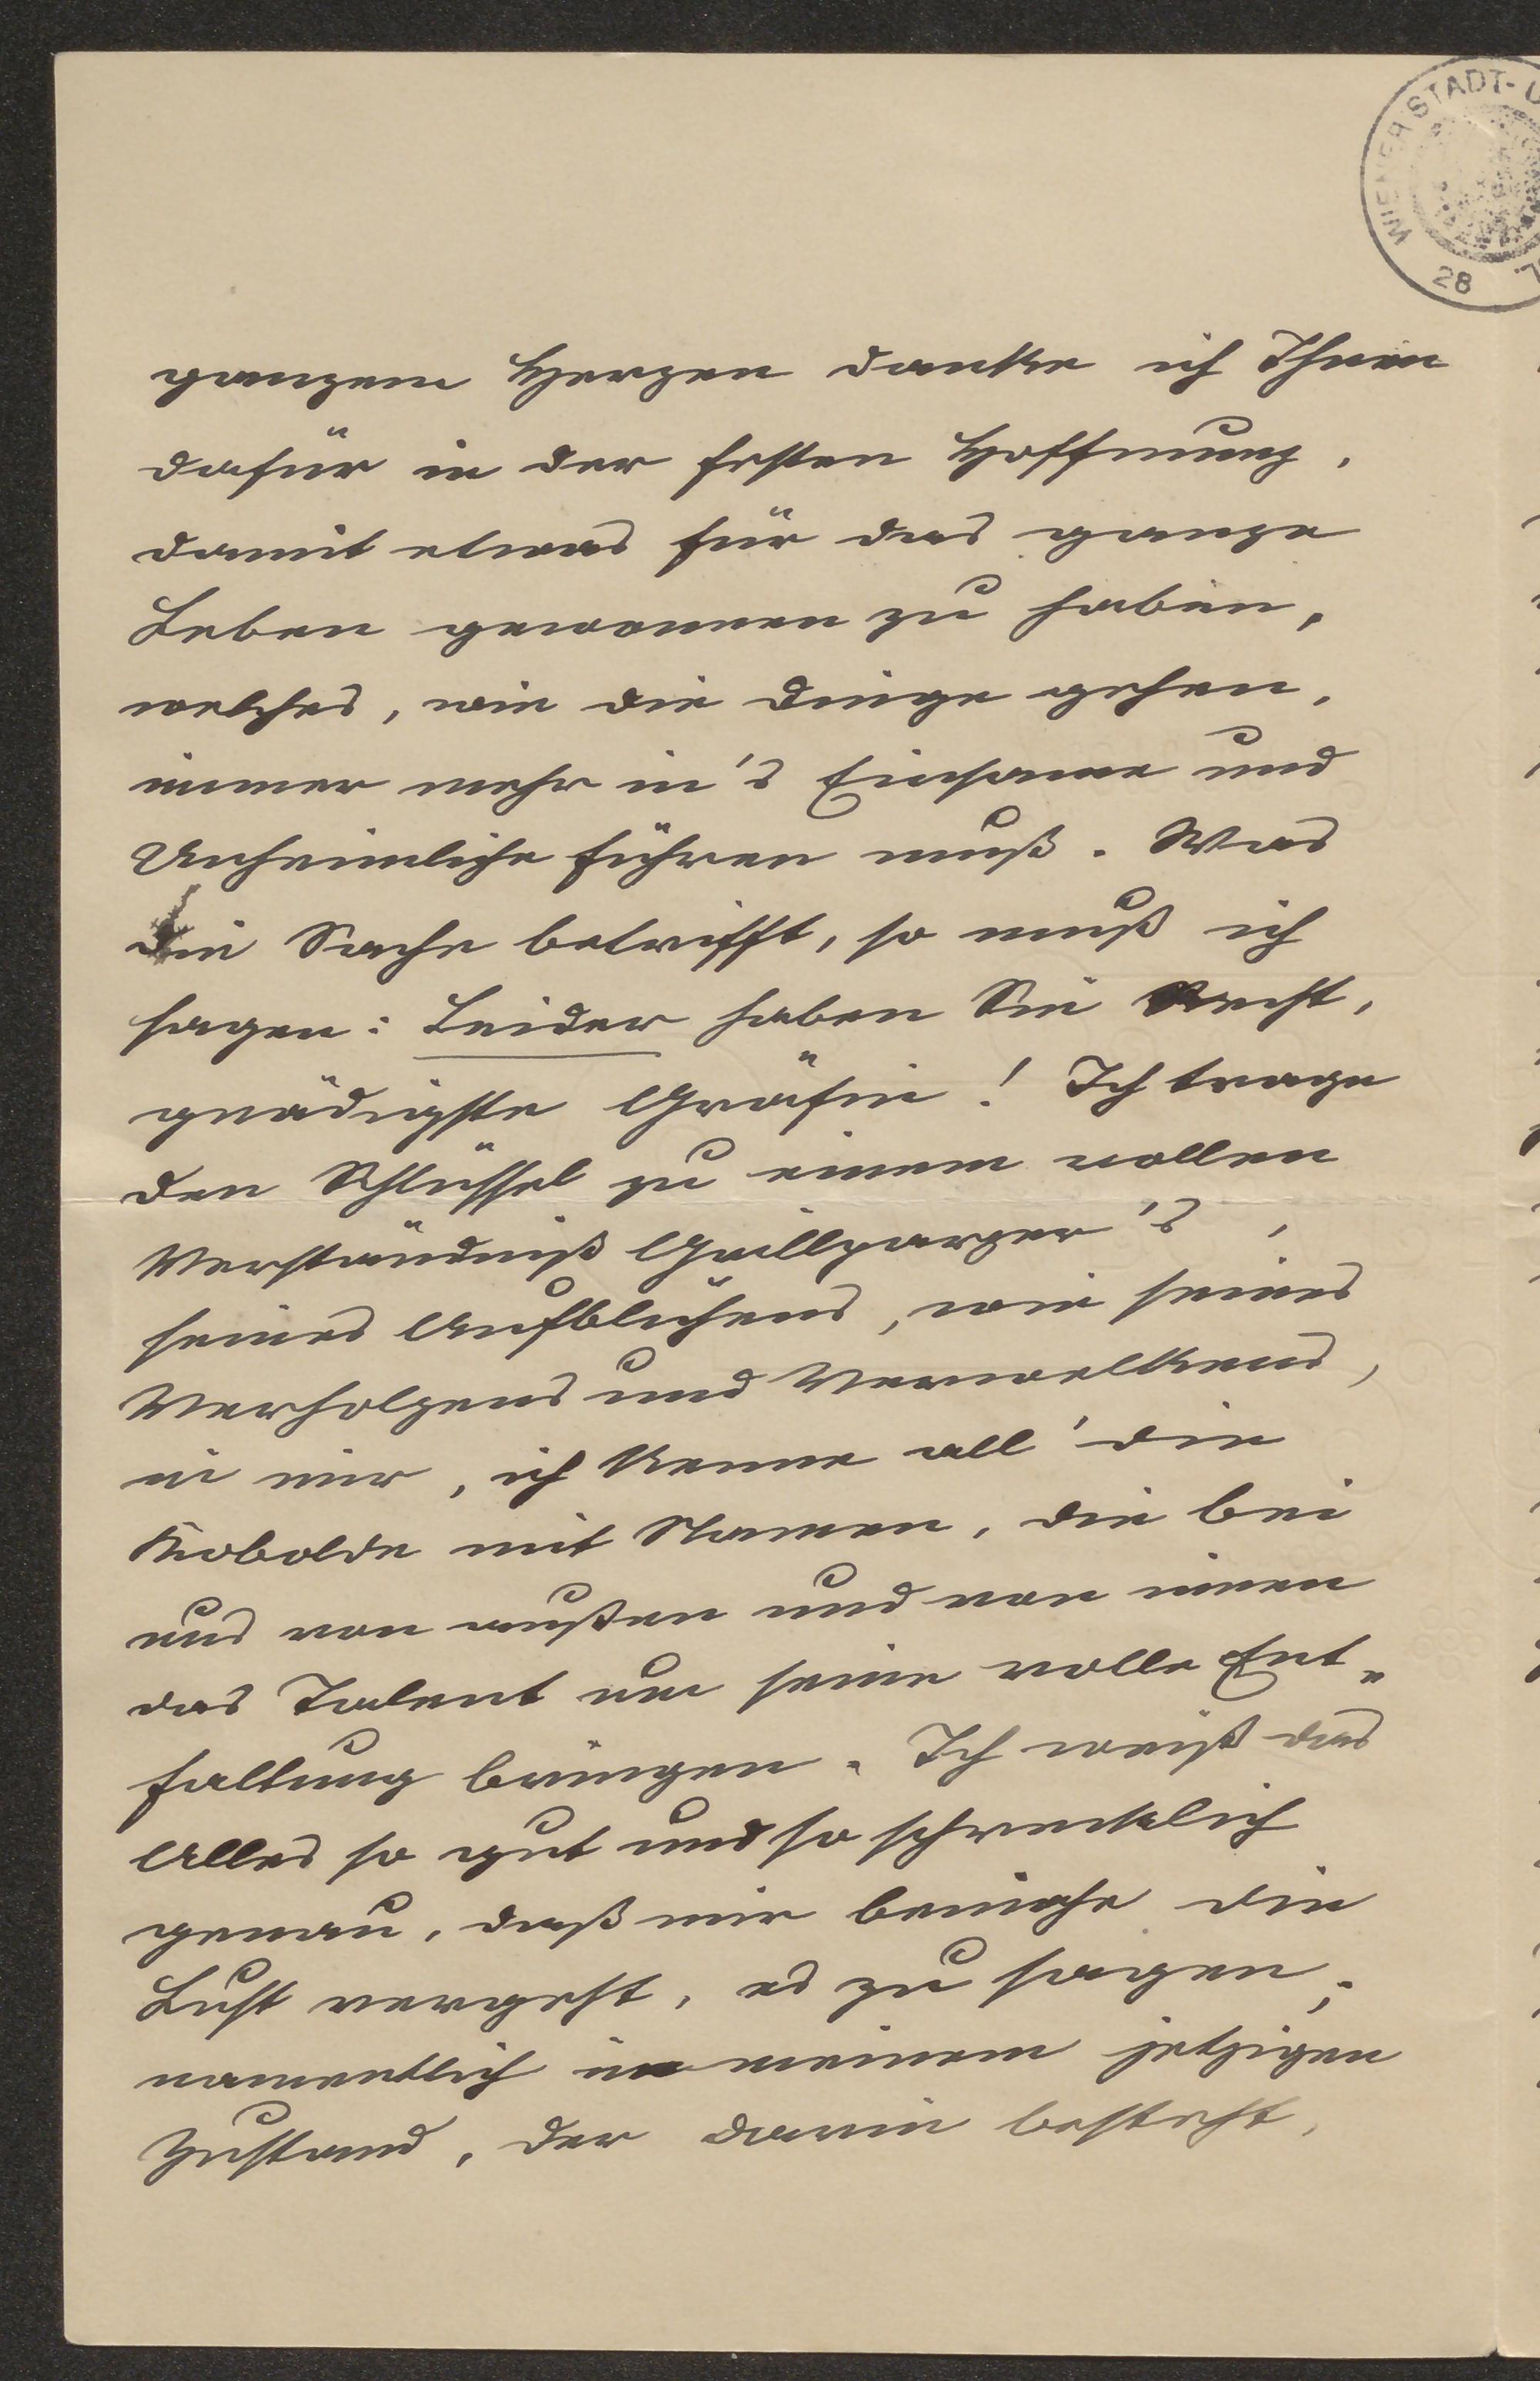 WIENER STADT- U
28
ganzem Herzen danke ich Ihnen
dafür in der festen Hoffnung,
damit etwas für das ganze
Leben gewonnen zu haben,
welches, wie die Dinge gehen,
immer mehr in's Einsame und
Unheimliche führen muß. Was
die Sache betrifft, so muß ich
sagen: Leider haben Sie Recht,
gnädigste Gräfin! Ich trage
den Schlüssel zu einem vollen
Verständniß Grillparzer's,
seines Aufblühens, wie seines
Verholzens und Verwelkens,
in mir, ich kenne all' die
Kobolde mit Namen, die bei
uns von außen und von innen
das Talent um seine volle Ent„
faltung bringen. Ich weiß das
Alles so gut und so schrecklich
genau, daß mir beinahe die
Lust vergeht, es zu sagen;
namentlich in meinem jetzigen
Zustand, der darin besteht,